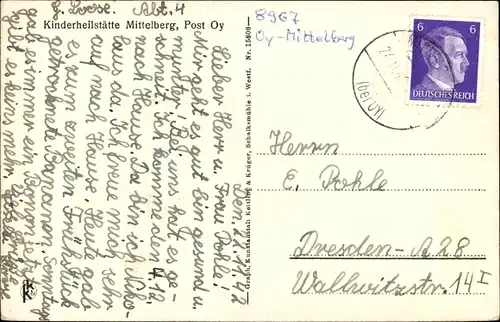 G. Loose. Abt. 4
Kinderheilstätte Mittelberg, Post Oy
8967
Oy-Mittelberg
6 6
DEUTSCHES REICH
(über OY)
Nr. 15808
Graph. Kunstanstalt Kettling & Krüger, Schalksmühle i. Westf.
den, 22.11.42
Lieber Herr u. Frau Pohle!
Mir geht es gut bin gesund u.
munter. Bei uns hat es ge-
schneit. Ich komme den 4.12.
nach Hause. Da bin ich
zu Haus da. Ich freue mich sehr
auf nach Hause. Heute gab
es zum zweiten Frühstück
getrocknete Bananen. Sonntags
gab es immer ein
jetzt gibt es keins mehr.
Herrn
E. Pohle
Dresden-A 28
Wallwitzstr. 14 I
KK